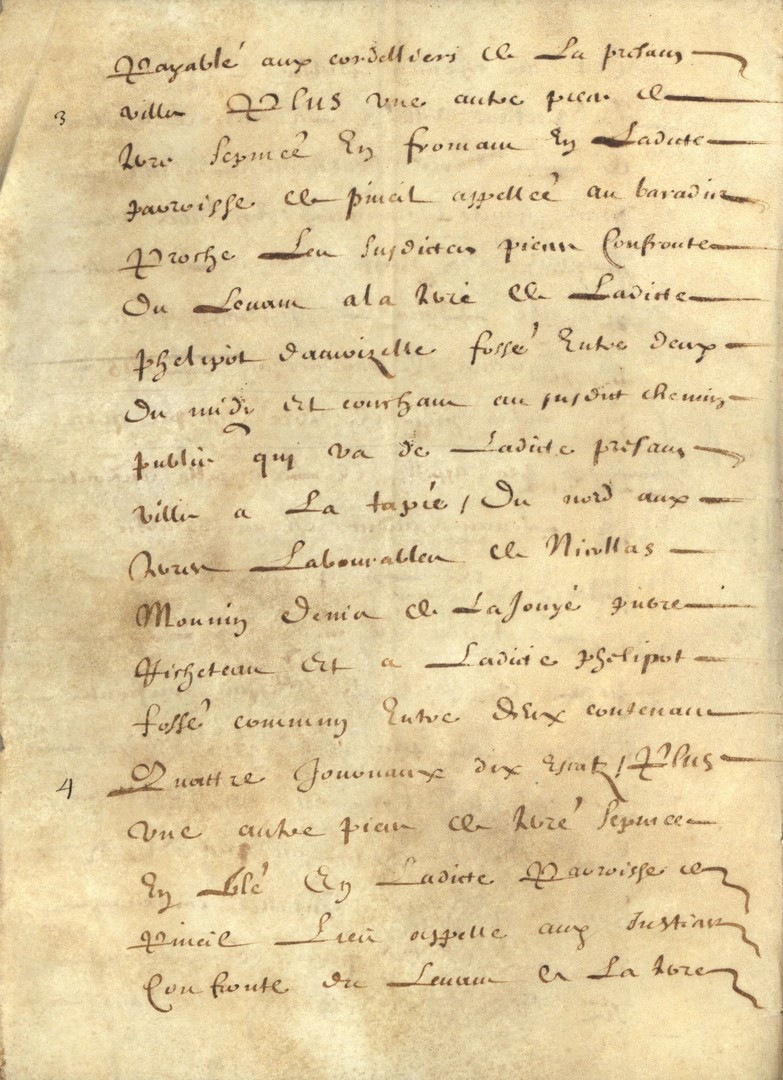 Payablé aux cordelliers de La presant
3 ville PLUS une autre piece de
terre semeé En froman En Ladicte
parroisse de pineil appelleé au baradin
Proche Les susdictes pieces Confronte
Du Levant a la terre de Ladicte
phelipot damoizelle fossé Entre deux
Du midi Et couchant au susdict chemin
public quy va de Ladicte presant
ville a La tapie / Du nord aux
terres Labourables de Nicollas
Mounin Denis de LaJouye pierre
Richeteau Et a Ladicte phelipot
fossé commun Entre deux contenant
4 Quattre Journaux dix escatz / Plus
une autre piece de terré semeé
En blé En Ladicte Parroisse de
Pineil Lieu appelle aux
Confronte du Levant a La terre